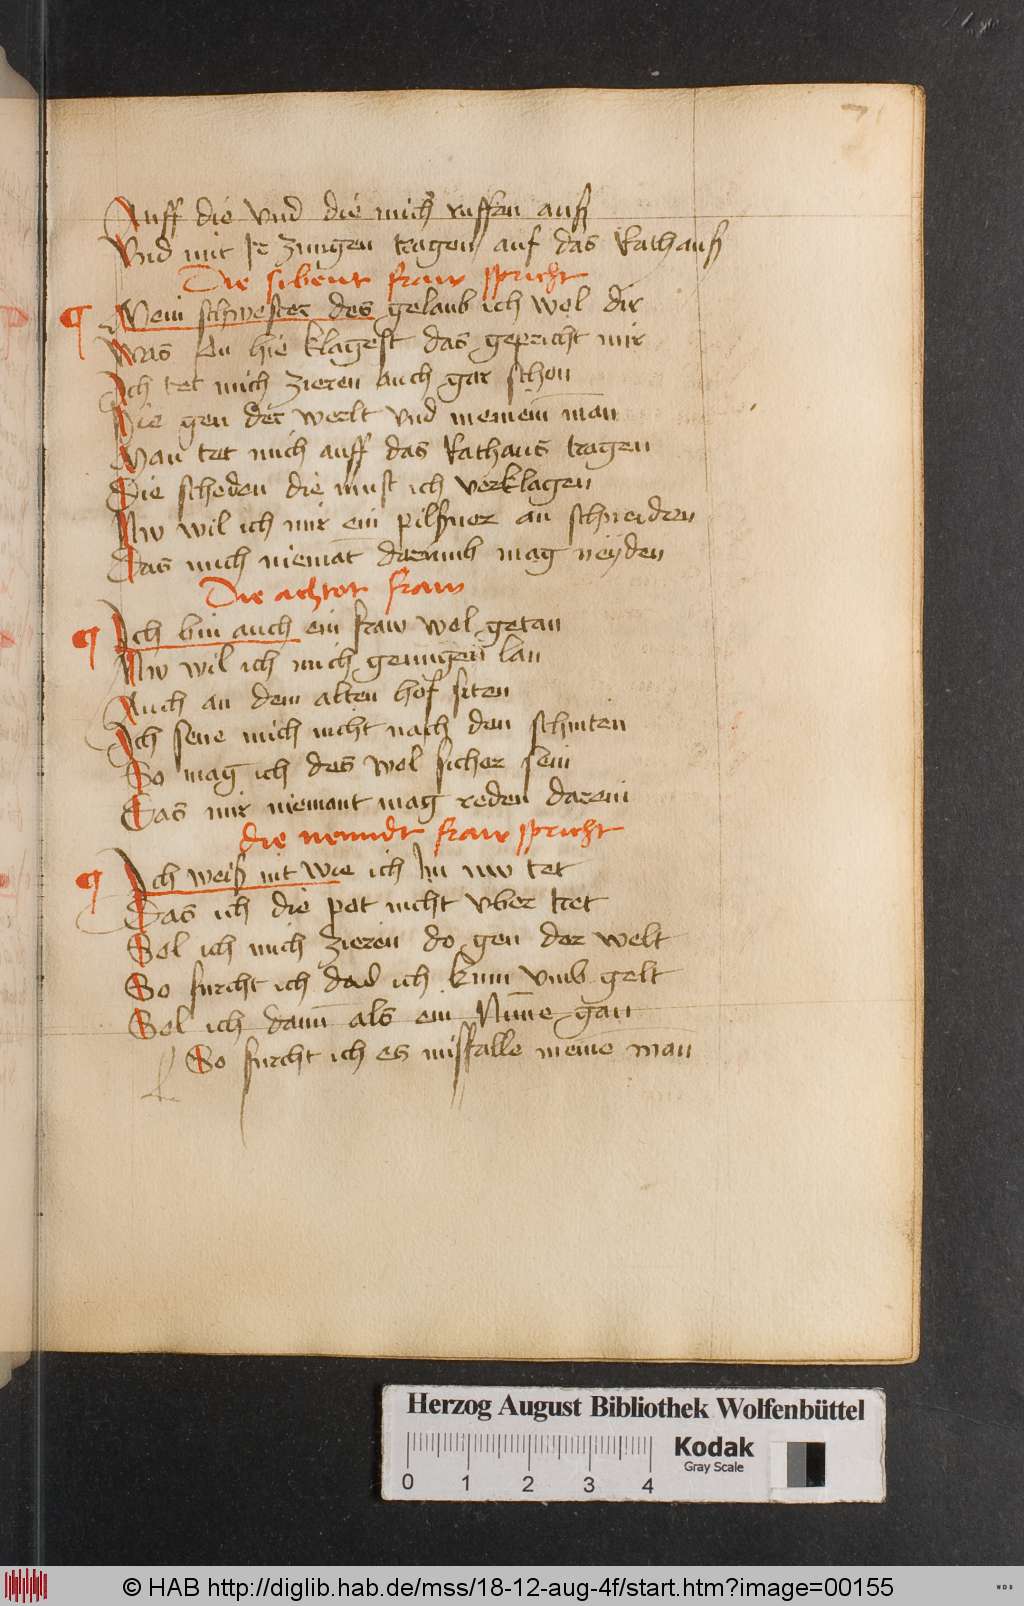 71
Auff die vnd die mich ruffen auß
Vnd mit Jr zungen tragen auf das Rathauß
Die sibent fraw spricht
¶ Mein schwester des gelaub ich wol dir
Was du hie klagest das gepricht mir
Ich tet mich zieren auch gar schon
Hie gen der werlt vnd meineim man
Man tet mich auff das Rathaus tragen
Die scheden die must ich verklagen
Nw wil ich mir ein pilsner an schneiden
Das mich niemāt darumb mag neyden
Die achtet fraw
¶ Ich bin auch ein fraw wol getan
Nw wil ich mich genugen lan
Auch an dem alten hof siten
Ich sene mich nicht nach den schniten
So mag ich des wol sicher sein
Das mir niemant mag reden darein
die newndt fraw spricht
¶ Ich weiß nit wie ich Im nw tet
Das ich die pot nicht vber tret
Sol ich mich zieren do gen der welt
So furcht ich das ich kum vmb gelt
Sol ich dann als ein Nūne gan
So furcht ich es missfalle meine man
Herzog August Bibliothek Wolfenbüttel
0 1 2 3 4
Kodak
Gray Scale
© HAB http://diglib.hab.de/mss/18-12-aug-4f/start.htm?image=00155